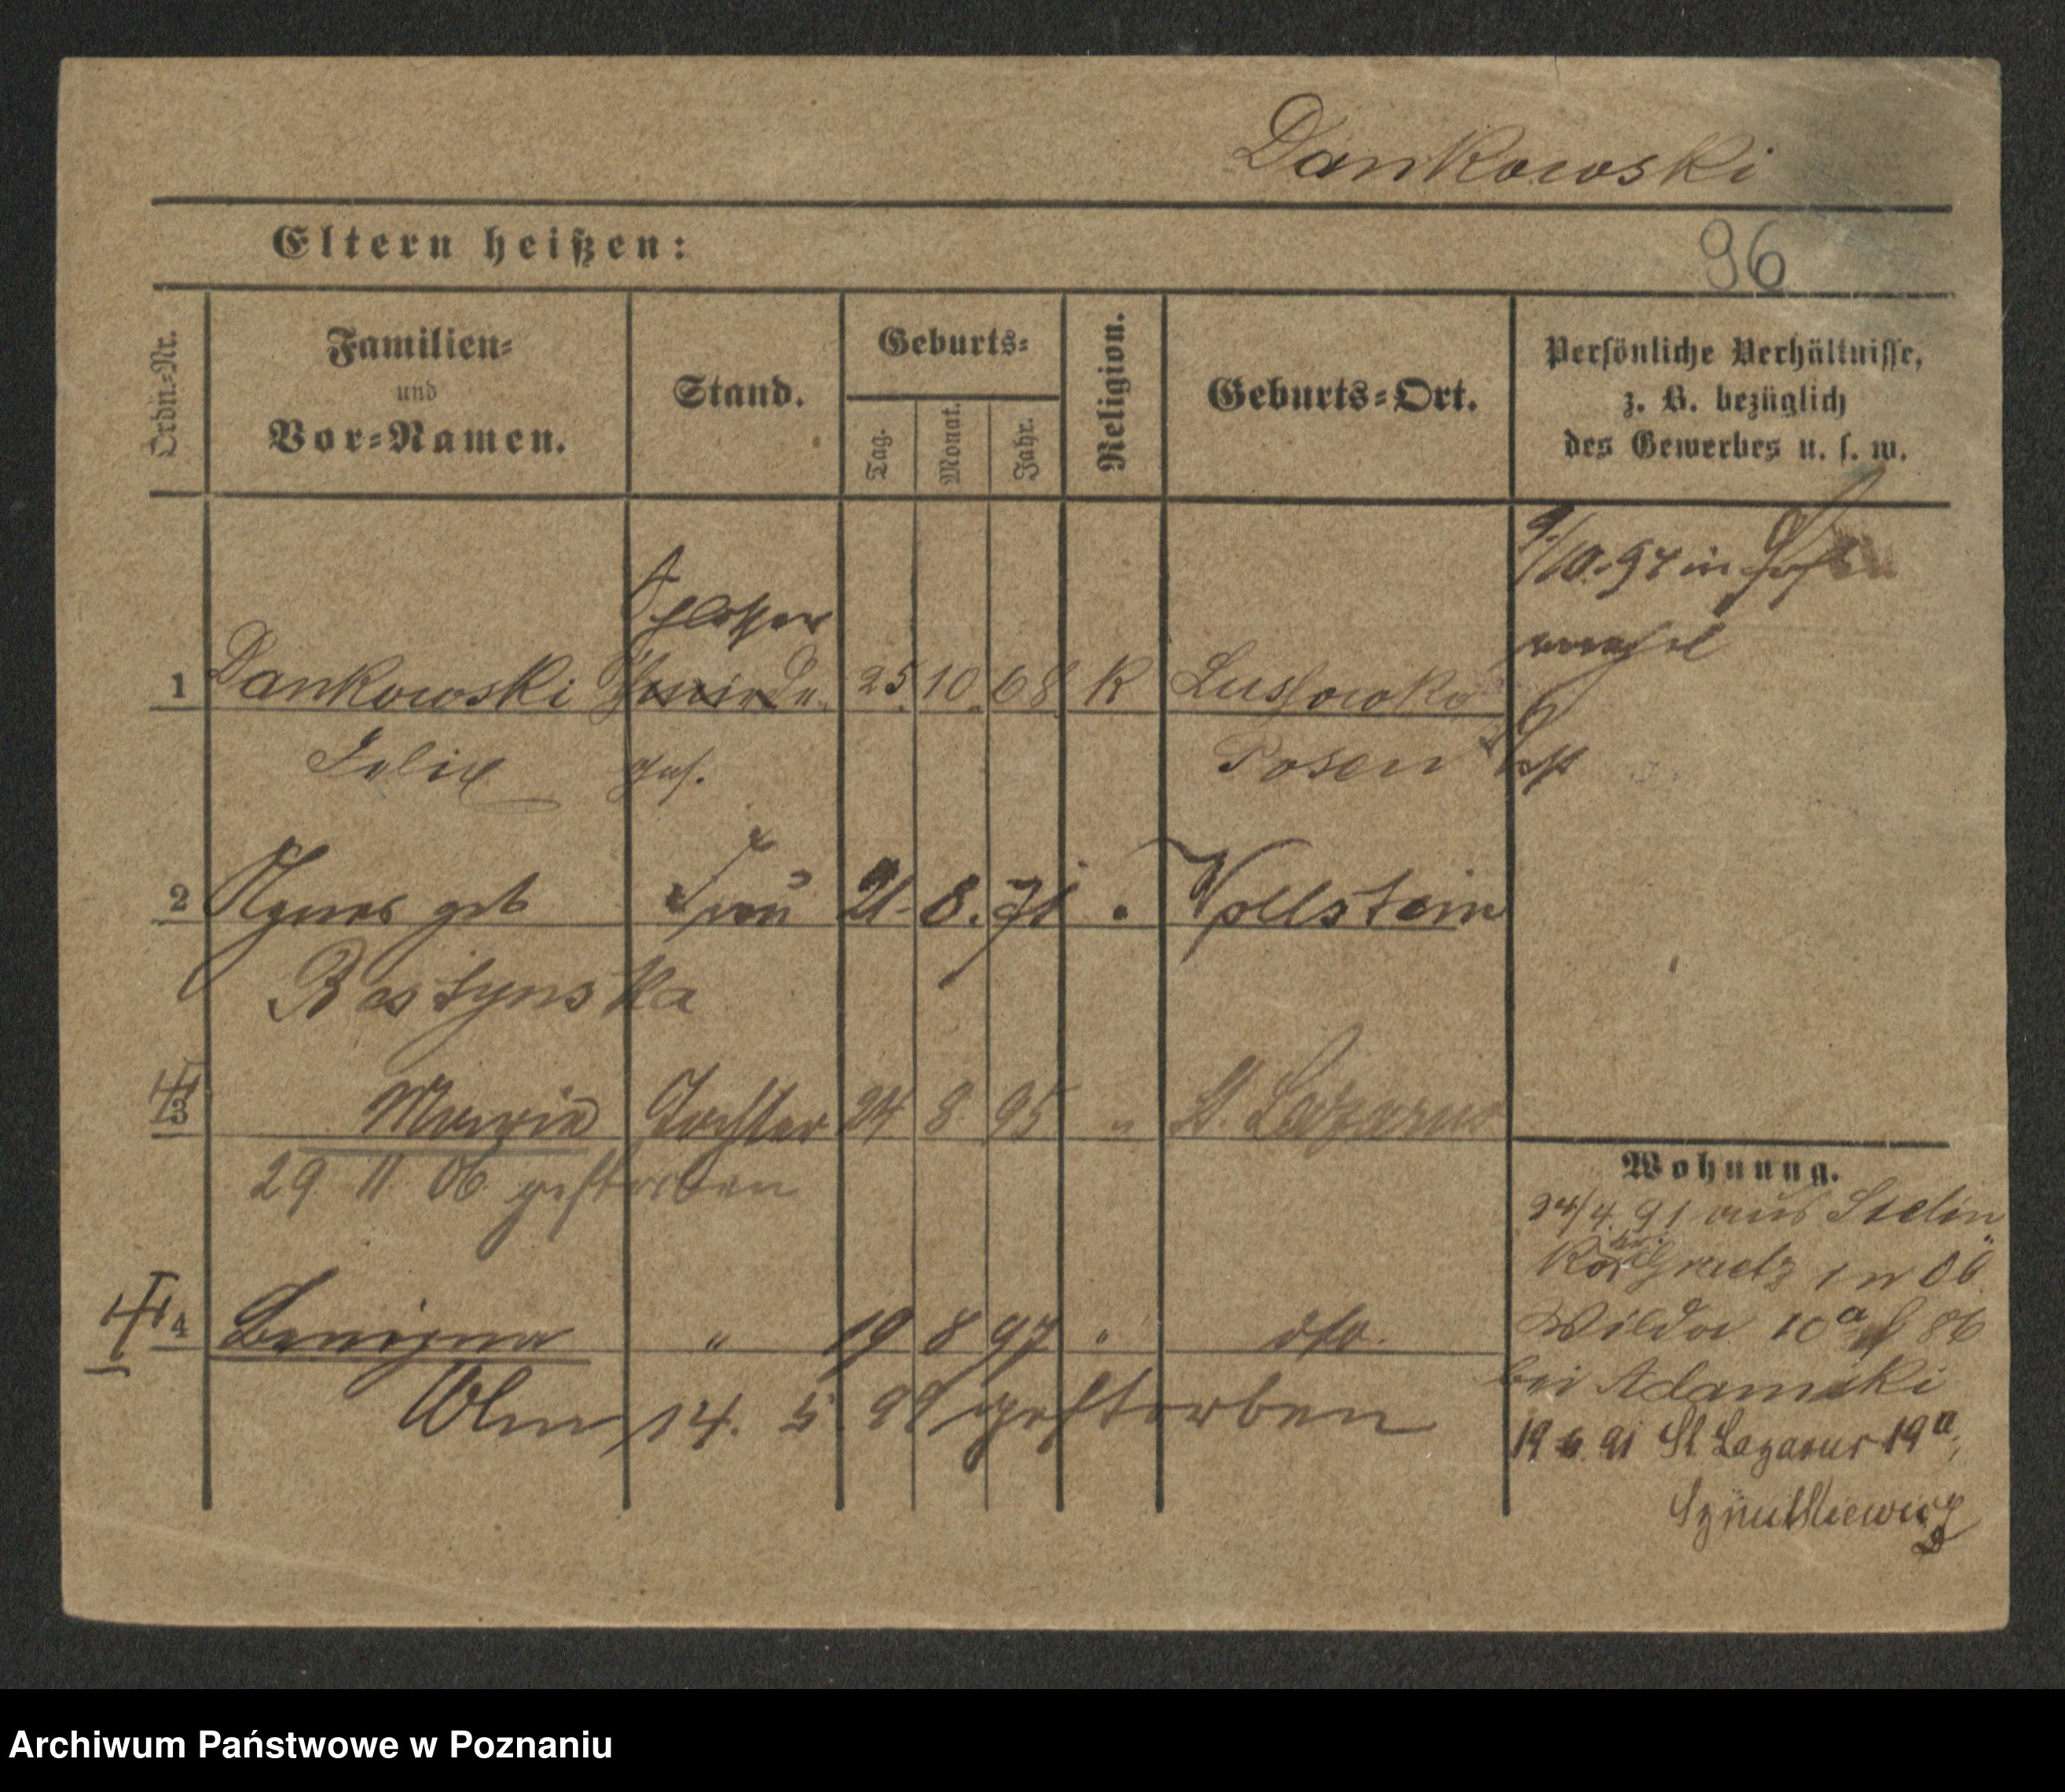 Dankowski
Eltern heißen:
96
Ordn.-Nr.
Familien-
und
Vor-Namen.
Stand.
Geburts-
Tag.
Monat.
Jahr.
Religion.
Geburts-Ort.
Persönliche Verhältnisse,
z. B. bezüglich
des Gewerbes u. s. w.
9./10. 97 in
Schlosser
1 Dankowski Schmiede 25. 10. 68. K Lussowko
Felix ges. Posen
2 Agnes geb Frau 21. 8. 71 " Wollstein
Bostynska
3 Marie Tochter 24 8 95 " St. Lazarus
29 11 06 gestorben
4 Benigna " 19 8 97 " dto.
14. 5. 99 gestorben
Wohnung.
24/4. 91 aus
Kr. Graetz in 06.
Wilda 10a 86
bei Adamski
19 6. 91 St Lazarus 19a,